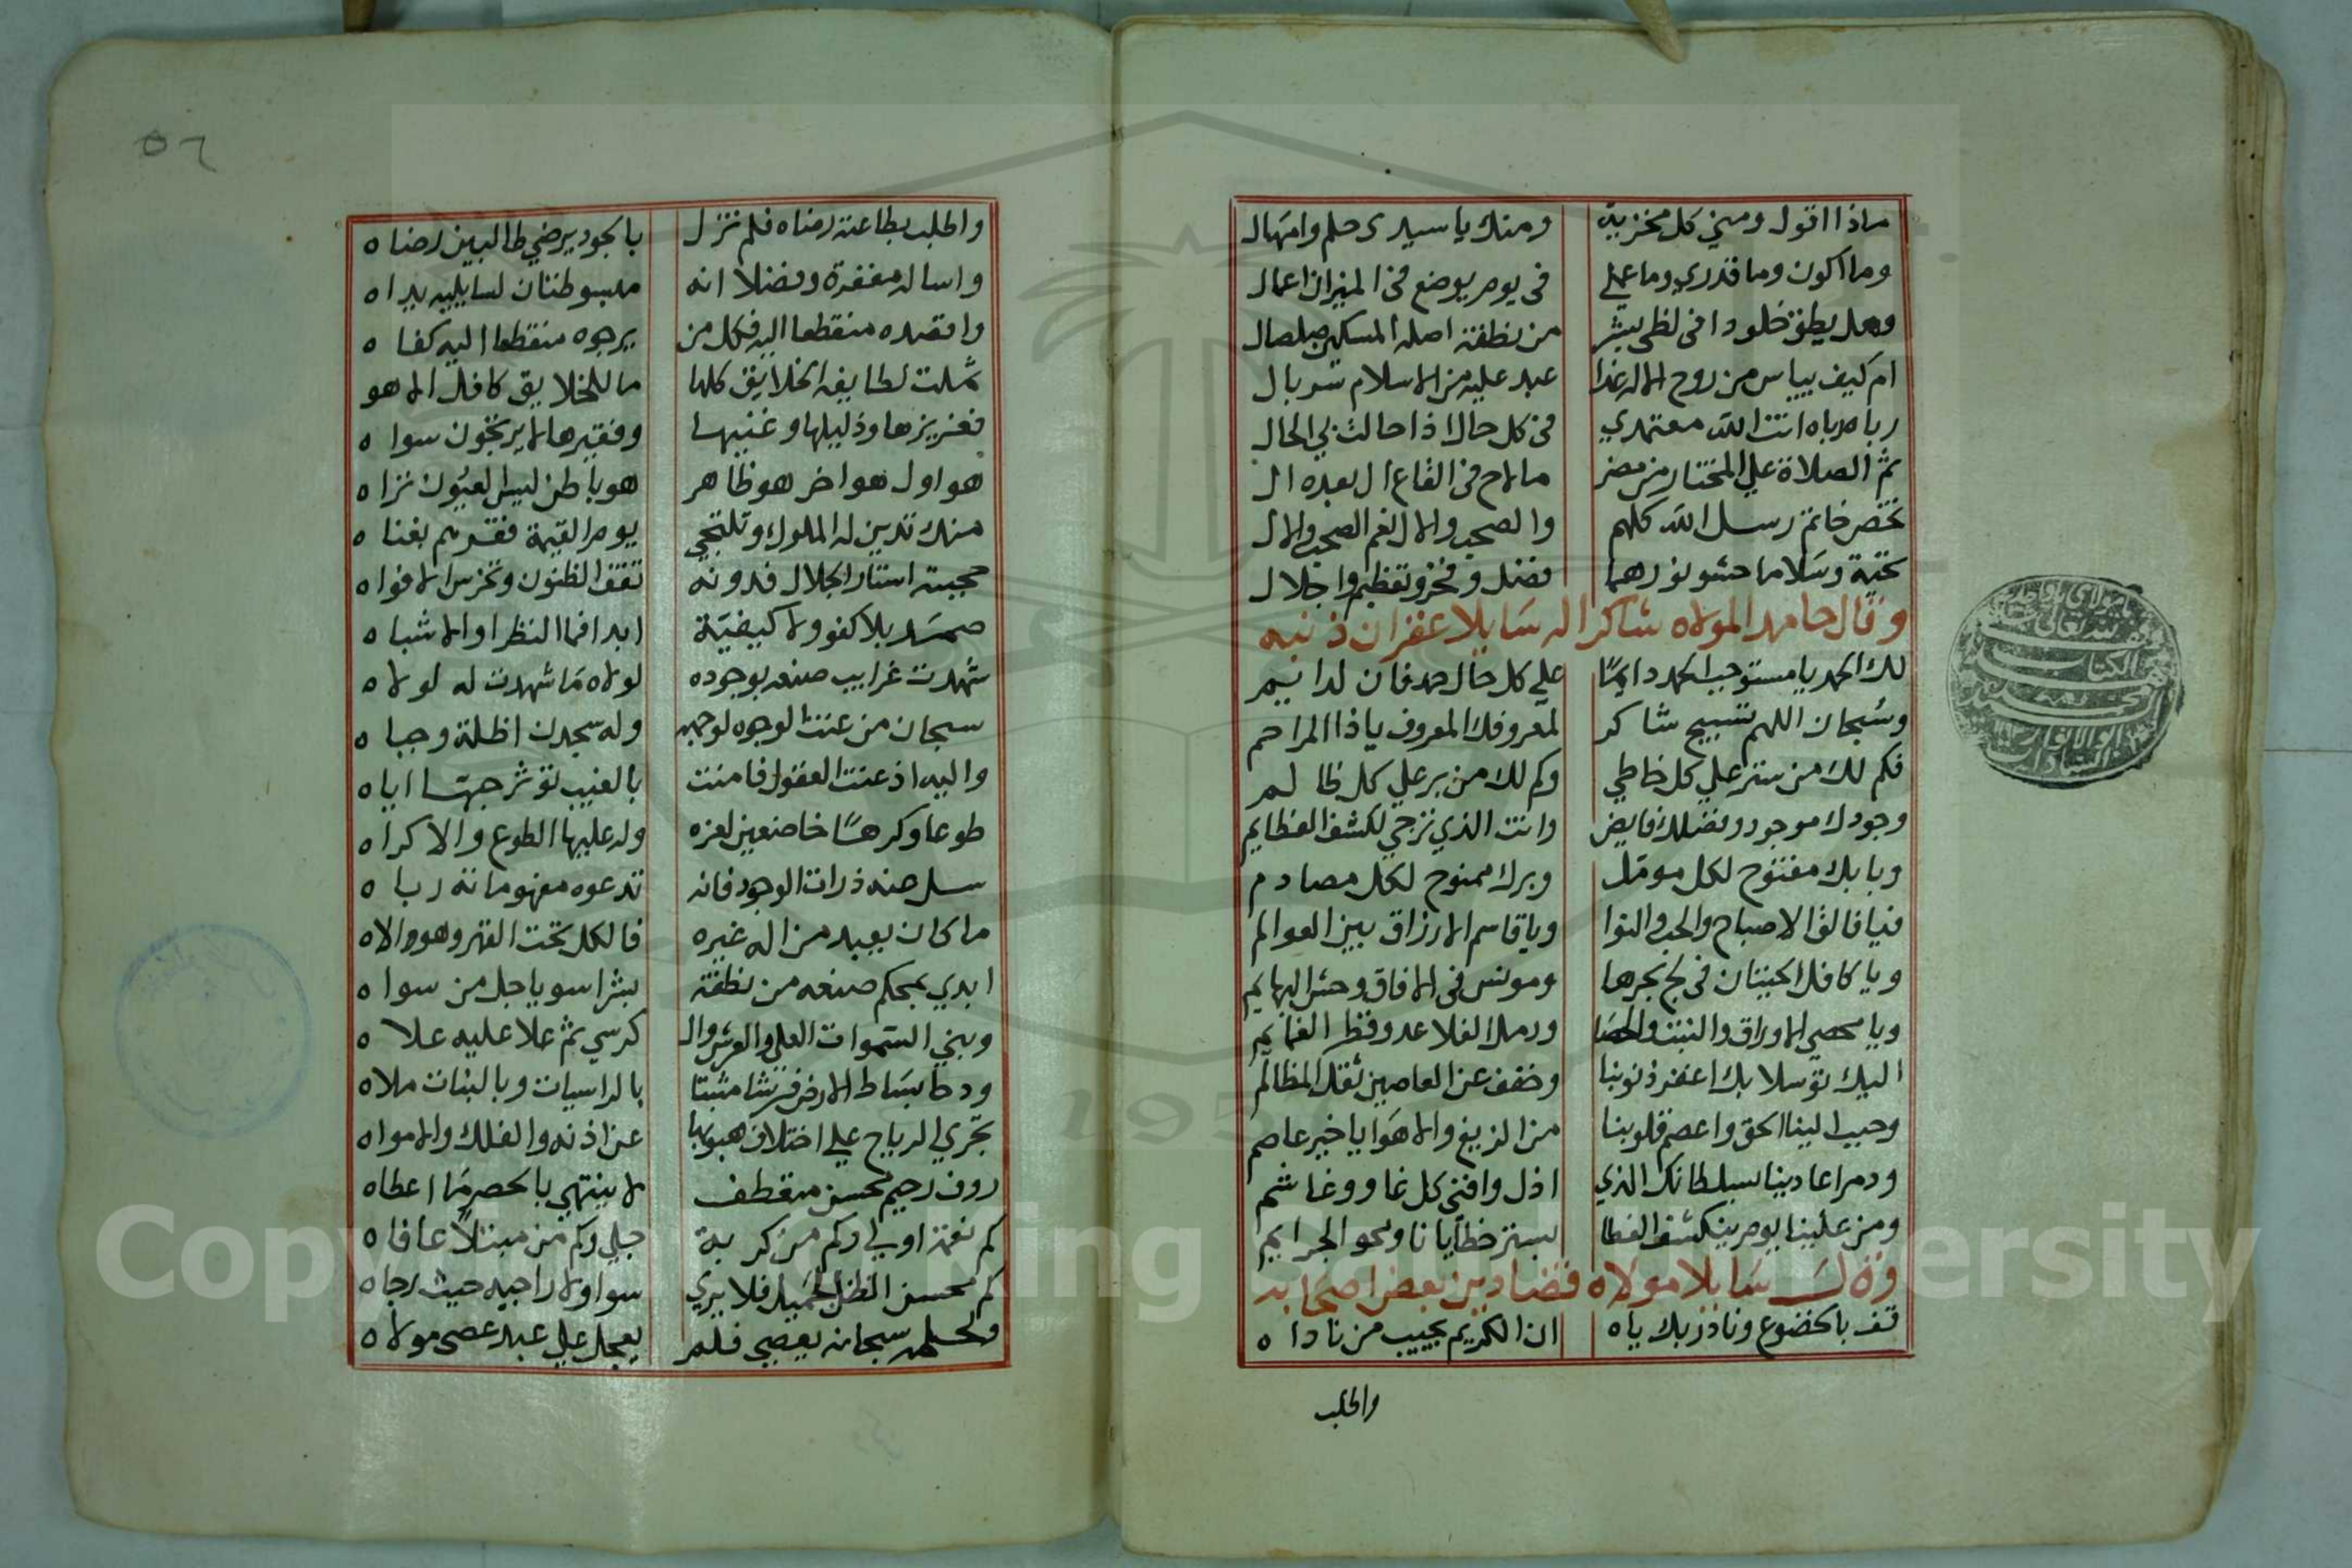 ماذا اقول ومني كل مخزية ومنك يا سيدي حلم وامهال
وما اكون وما قدري وما عملي في يوم يوضع في الميزان اعمال
وهل يطيق خلودا في لظى بشر من نطفة اصله المسكين صلصال
ام كيف ييياس من روح الاله غدا عبد عليه من الاسلام سربال
رباه رباه انت الله معتمدي في كل حال اذا حالت بي الحال
ثم الصلاة علي المختار من مضر ما لاح في القاع ال بعده ال
تخص خاتم رسل الله كلهم والصحب والال نعم الصحب والال
تحية وسلاما حشو نورهما فضل وفخر وتعظيم واجلال
وقال حامدا لمولاه شاكرا له سايلا غفران ذنبه
لك الحمد يا مستوجب الحمد دايما علي كل حال حمد فان لدايم
وسبحان اللهم تسبيح شاكر لمعروفك المعروف يا ذا المراحم
فكم لك من ستر علي كل خاطي وكم لك من بر علي كل ظالم
وجودك موجود وفضلك فايض وانت الذي نرجي لكشف العظايم
وبابك مفتوح لكل مومل وبرك ممنوح لكل مصادم
فيا فالق الاصباح والحب والنوا ويا قاسم الارزاق بين العوالم
ويا كافل الحيتان في لج بحرها ومونس في الافاق وحش البهايم
ويا محصي الاوراق والنبت والحصا ورمل الفلا عد وقطر الغمايم
اليك توسلا بك اغفر ذنوبنا وخفف عن العاصين ثقل المظالم
وحبب الينا الحق واعصم قلوبنا من الزيغ والاهوا يا خير عاصم
ودمر اعادينا بسلطانك الذي اذل وافنى كل غاو وغاشم
ومن علينا يوم ينكشف الغطا بستر خطايانا ومحو الجرايم
وقال سايلا مولاه قضا دين بعض اصحابه
قف بالخضوع وناد ربك ياه ان الكريم يجيب من ناداه
واطلب
٥٦
واطلب بطاعته رضاه فلم نزل بالجود يرضي طالبين رضاه
واساله مغفرة وفضلا انه مبسوطتان لسايليه يداه
واقصده منقطعا اليه فكل من يرجوه منقطعا اليه كفاه
شملت لطايفه الخلايق كلها ما للخلايق كافل الا هو
فعزيزها وذليلها وغنيها وفقيرها لا يرتجون سواه
هو اول هو اخر هو ظاهر هو باطن ليس العيون تراه
منك تدين له الملوك وتلتجي يوم القيمة فقرهم بغناه
حجبته استار الجلال فدونه تقف الظنون وتخرس الافواه
صمد بلا كفو ولا كيفية ابدا فما النظرا والاشباه
شهدت غرايب صنعه بوجوده لولاه ما شهدت له لولاه
سبحان من عنت الوجوه لوجهه وله سجدت اظلة وجباه
واليه اذعنت العقول فامنت بالغيب تؤثر حبها اياه
طوعا وكرها خاضعين لعزه وله عليها الطوع والاكراه
سل عنه ذرات الوجود فانه تدعوه معهوما نه رباه
ما كان يعبد من اله غيره فالكل تحت القهر وهو الاه
ابدي بمحكم صنعه من نطفة بشرا سويا جل من سواه
وبني السموات العلى والعرش وال كرسي ثم علا عليه علاه
ودحا بساط الارض فرشا مثبتا بالراسيات وبالنبات ملاه
تجري الرياح علي اختلاف هبوبها عن اذنه والفلك والامواه
رءوف رحيم محسن متعطف لا ينتهي بالحصر ما اعطاه
كم نعمة اولي وكم من كربة جلي وكم من مبتلا عافاه
كم محسن الظن الجميل فلا يري سوا ولا راجيه حيث رجاه
ولحلمه سبحانه يعصي فلم يعجل علي عبد عصى مولاه